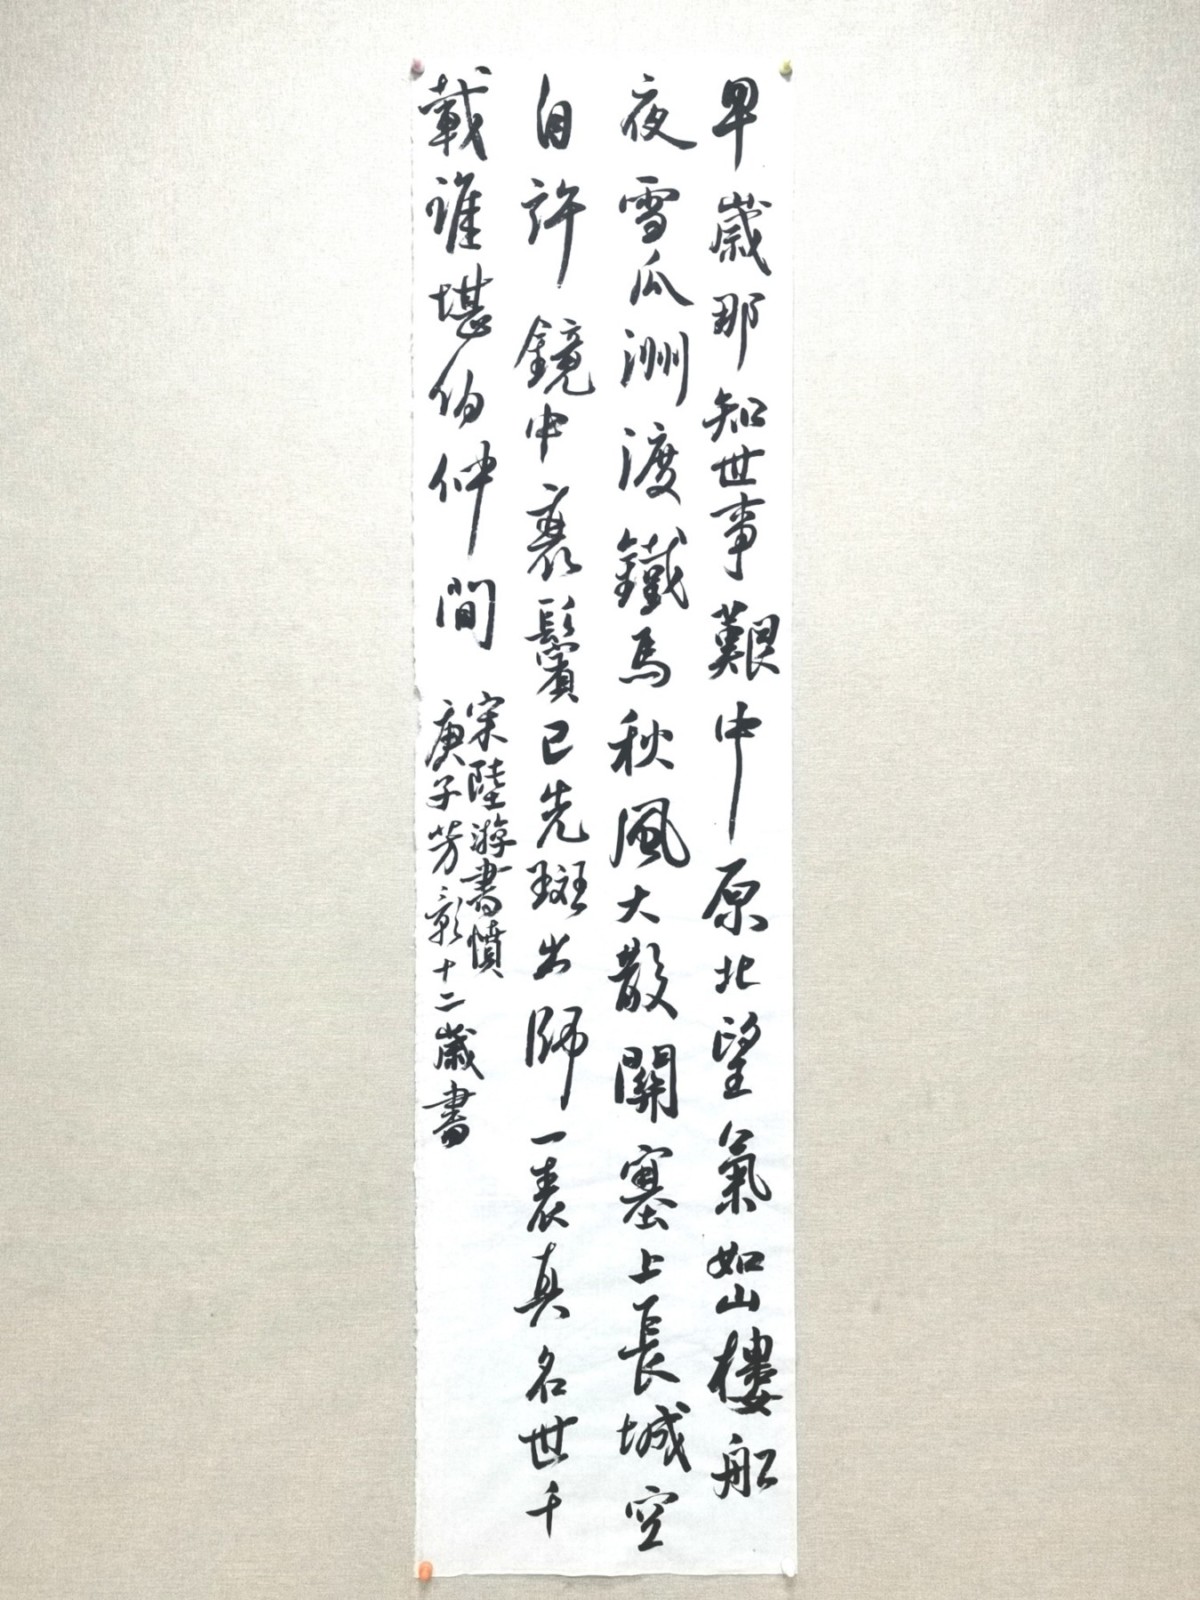 早歲那知世事艱中原北望氣如山樓船
夜雪瓜洲渡鐵馬秋風大散關塞上長城空
自許鏡中衰鬢已先斑出師一表真名世千
載誰堪伯仲間
宋陸游書憤
庚子芳彰十二歲書